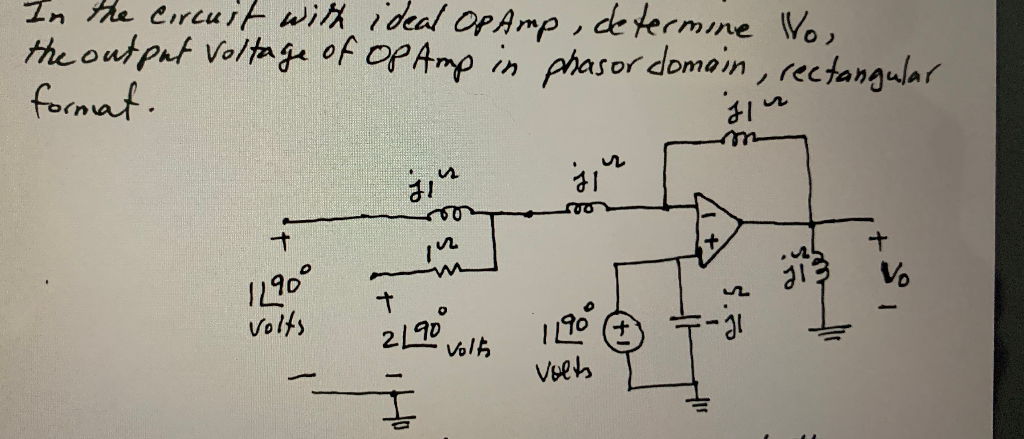 In the circuit with ideal OPAmp, determine Vo,
the output Voltage of OPAmp in phasor domain, rectangular
format.
j1Ω
j1Ω
j1Ω
1Ω
+
1∠90°
Volts
−
+
2∠90° Volts
−
1∠90°
Volts
+
−
-j1Ω
−
+
j1Ω
+
Vo
−